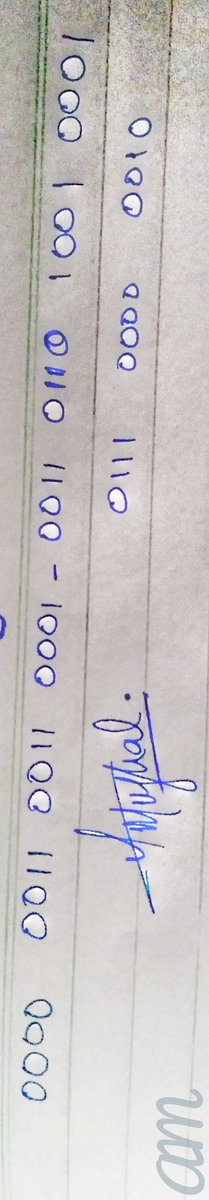 0000 0011 0011 0001 - 0011 0110 1001 0001
0111 0000 0010
am